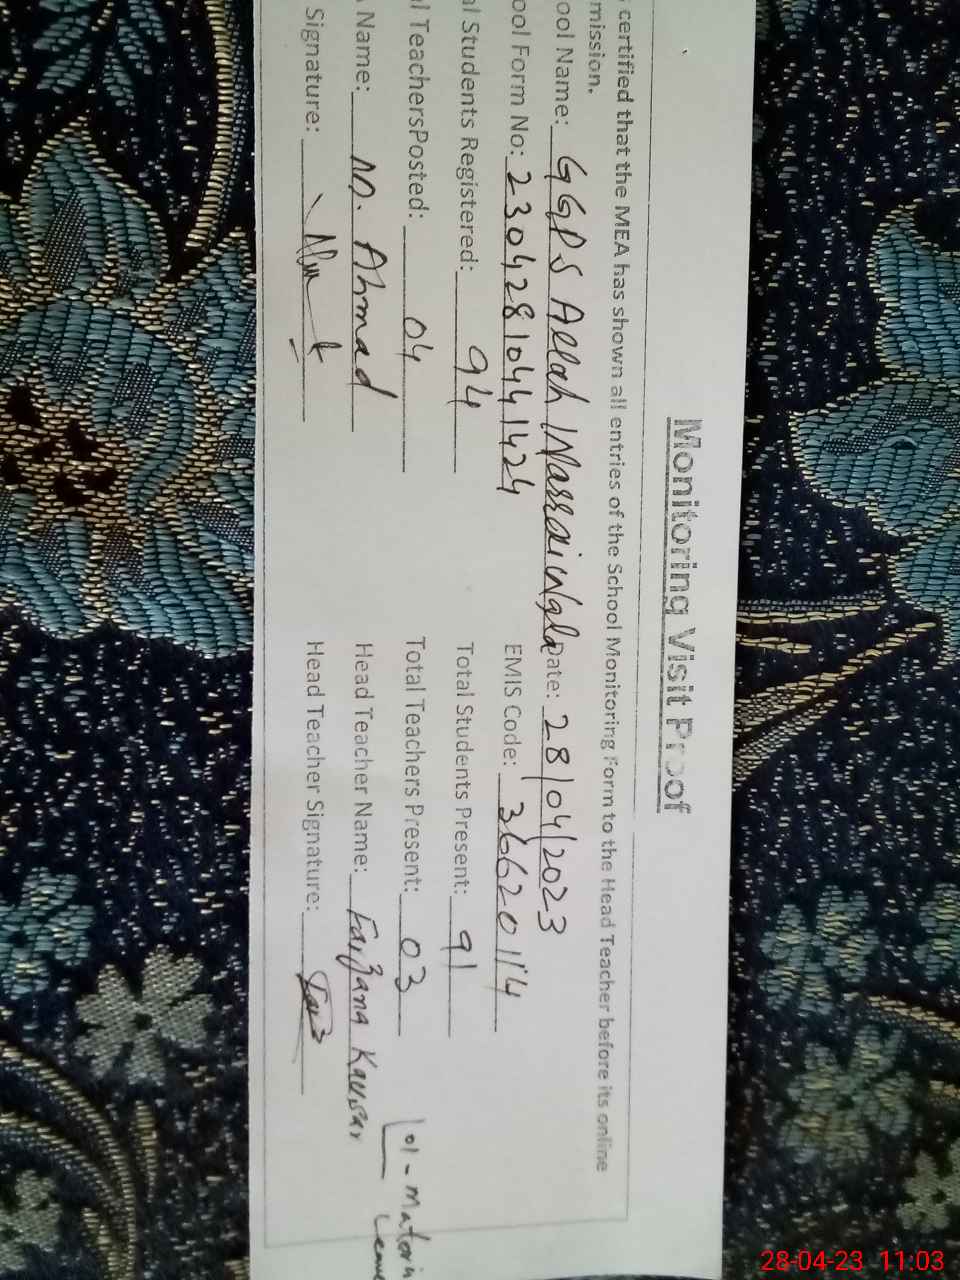 Monitoring Visit Proof
certified that the MEA has shown all entries of the School Monitoring Form to the Head Teacher before its online
mission.
ool Name: GGPS Allah Wassai Wala Date: 28/04/2023
ool Form No: 23042810441424 EMIS Code: 36620114
al Students Registered: 94 Total Students Present: 91
l TeachersPosted: 04 Total Teachers Present: 03
01-Matorn
Leave
Name: M. Ahmad Head Teacher Name: Farzana Kausar
Signature: Head Teacher Signature:
28-04-23 11:03